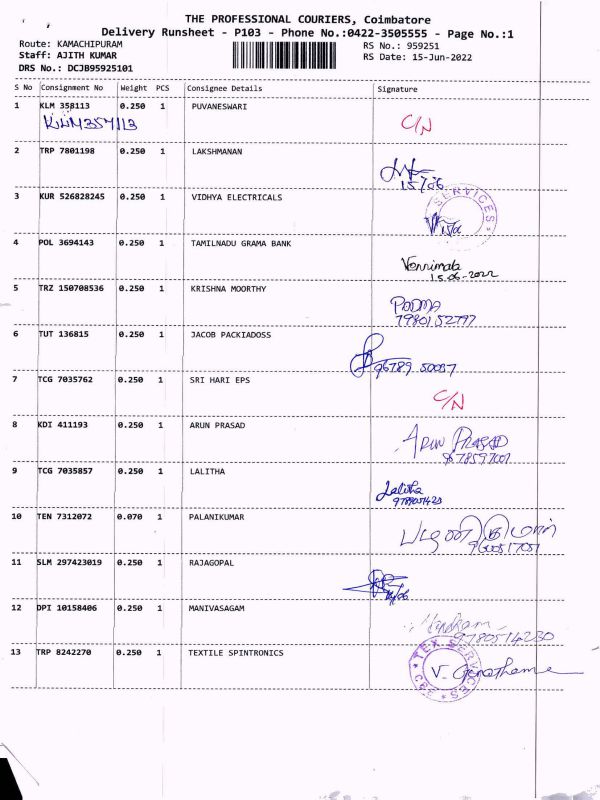 THE PROFESSIONAL COURIERS, Coimbatore
Delivery Runsheet - P103 - Phone No.:0422-3505555 - Page No.:1
Route: KAMACHIPURAM
RS No.: 959251
Staff: AJITH KUMAR
RS Date: 15-Jun-2022
DRS No.: DCJB95925101
S No Consignment No Weight PCS Consignee Details Signature
1 KLM 358113 0.250 1 PUVANESWARI
C/N
2 TRP 7801198 0.250 1 LAKSHMANAN
15/06
3 KUR 526828245 0.250 1 VIDHYA ELECTRICALS
SERVICES
15/06
4 POL 3694143 0.250 1 TAMILNADU GRAMA BANK
15.06-2022
5 TRZ 150708536 0.250 1 KRISHNA MOORTHY
PADMA
6 TUT 136815 0.250 1 JACOB PACKIADOSS
7 TCG 7035762 0.250 1 SRI HARI EPS
C/N
8 KDI 411193 0.250 1 ARUN PRASAD
ARUN PRASAD
9 TCG 7035857 0.250 1 LALITHA
Lalitha
10 TEN 7312072 0.070 1 PALANIKUMAR
11 SLM 297423019 0.250 1 RAJAGOPAL
12 DPI 10158406 0.250 1 MANIVASAGAM
9780514230
13 TRP 8242270 0.250 1 TEXTILE SPINTRONICS
TEX SERVICES
CBE